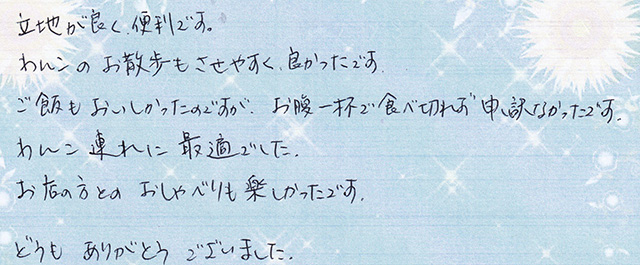 立地が良く、便利です。
わんこの お散歩も させやすく、良かったです.
ご飯も おいしかったのですが、お腹一杯で食べ切れず 申し訳なかったです.
わんこ 連れに 最適でした.
お店の方との おしゃべりも 楽しかったです.
どうも ありがとう ございました.